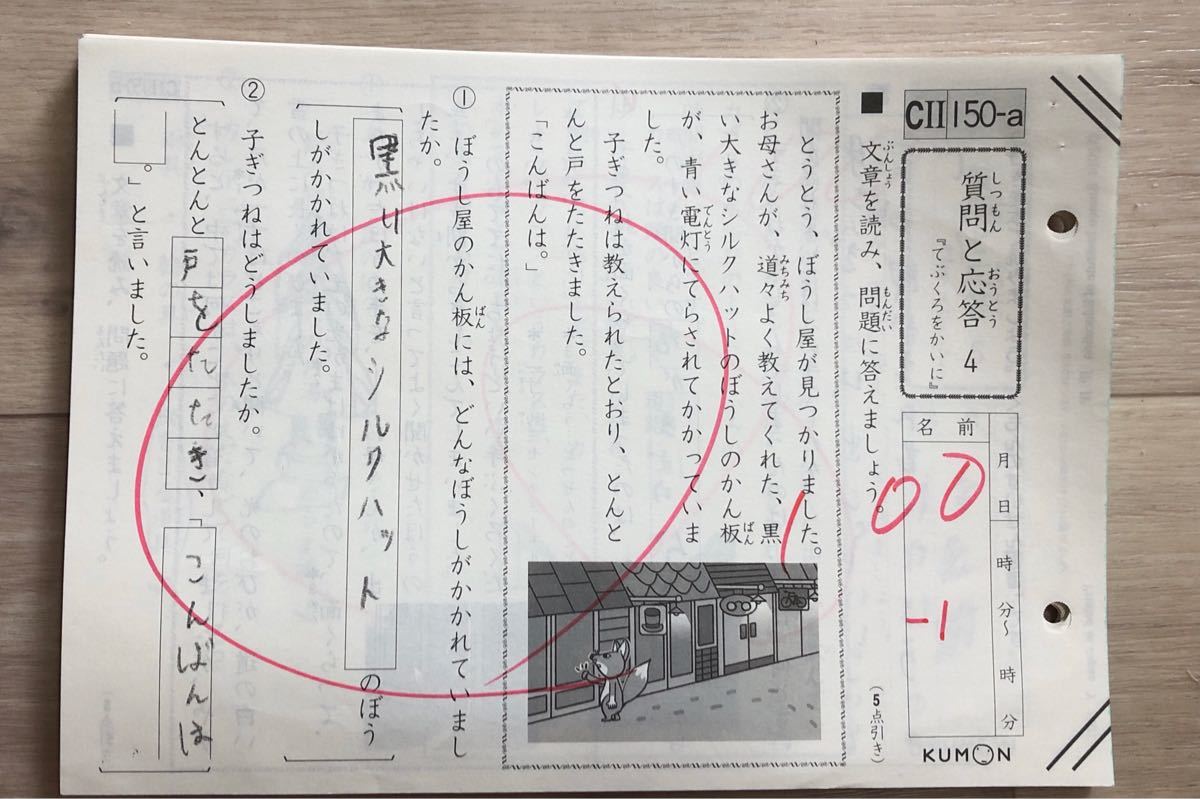 CII 150-a
質問と応答 4
しつもん おうとう
『てぶくろをかいに』
名前
月 日 時 分〜 時 分
100
-1
KUMON
■ 文章を読み、問題に答えましょう。
ぶんしょう もんだい
(5点引き)
とうとう、ぼうし屋が見つかりました。
お母さんが、道々よく教えてくれた、黒
みちみち
い大きなシルクハットのぼうしのかん板
ばん
が、青い電灯にてらされてかかっていま
でんとう
した。
子ぎつねは教えられたとおり、とんと
んと戸をたたきました。
「こんばんは。」
① ぼうし屋のかん板には、どんなぼうしがかかれていまし
ばん
たか。
黒い大きなシルクハット のぼう
しがかかれていました。
② 子ぎつねはどうしましたか。
とんとんと戸をたたき、「こんばんは
。」と言いました。